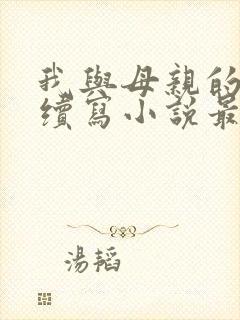 我與母親的
續寫小說最
湯韜